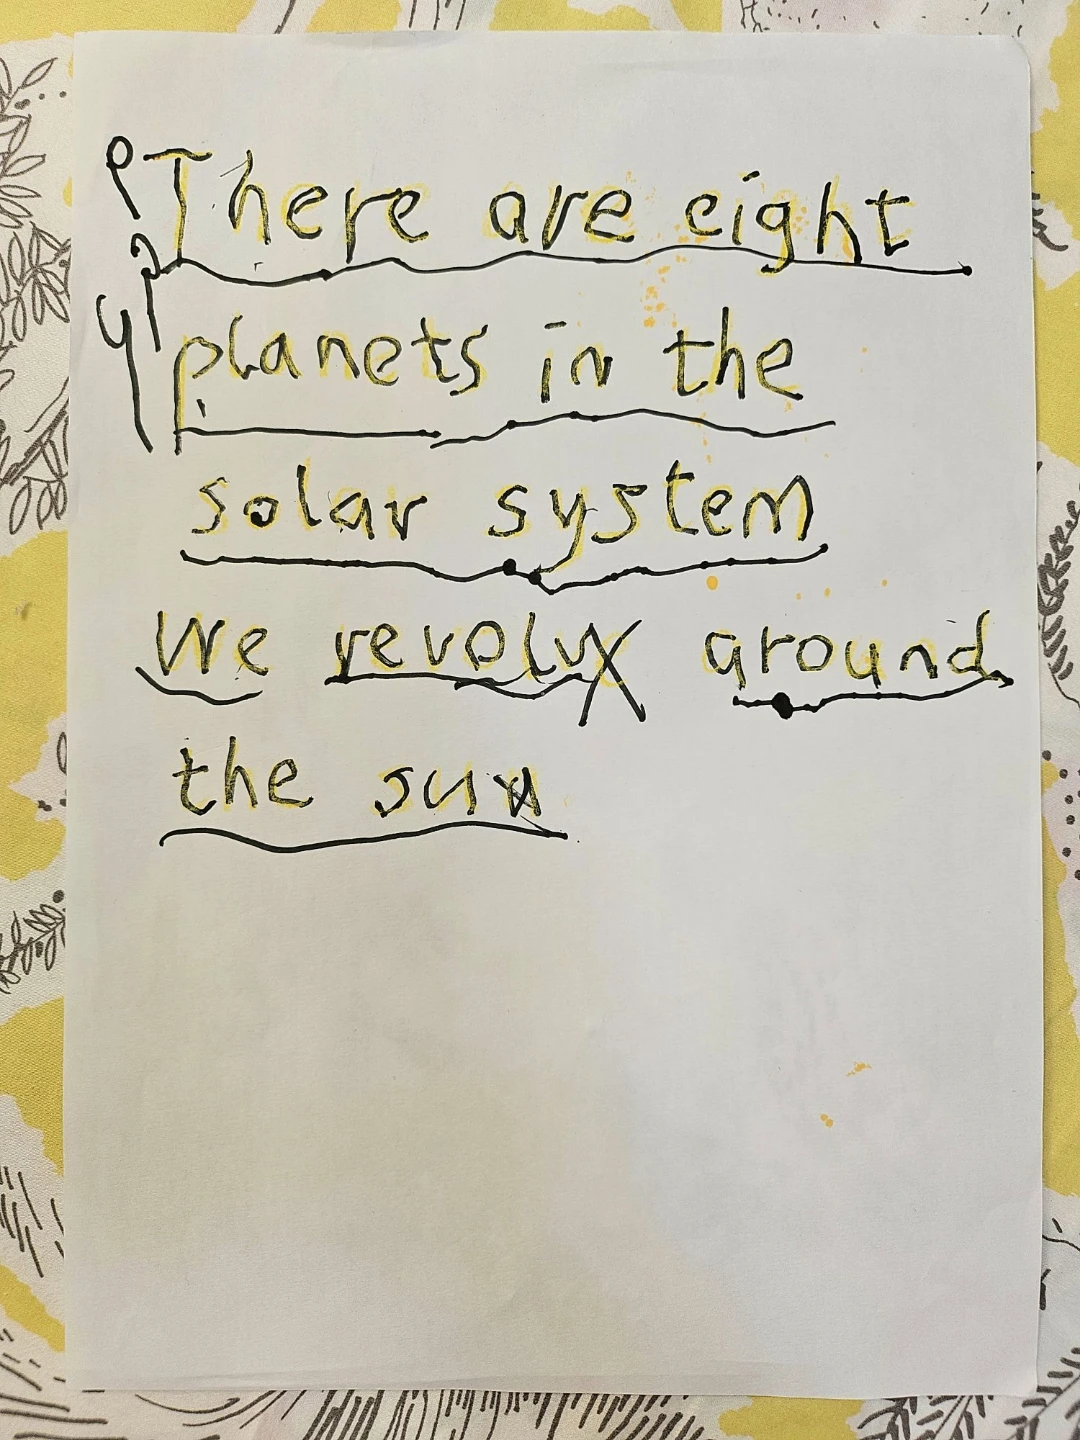 There are eight
planets in the
solar system
We around
the sun